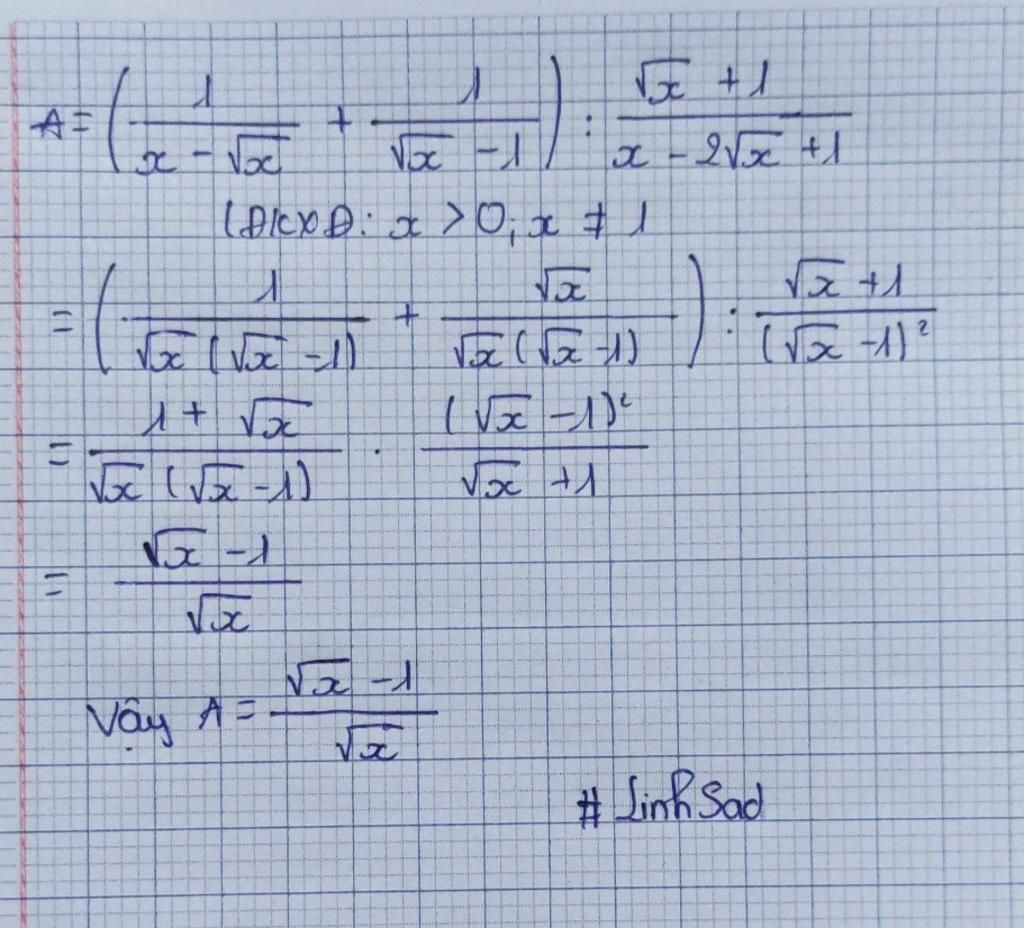 A = ( 1/(x - √x) + 1/(√x - 1) ) : (√x + 1)/(x - 2√x + 1)
(ĐKXĐ: x > 0; x ≠ 1
= ( 1/(√x (√x - 1)) + √x/(√x (√x - 1)) ) : (√x + 1)/(√x - 1)²
= (1 + √x)/(√x (√x - 1)) . (√x - 1)²/(√x + 1)
= (√x - 1)/√x
Vậy A = (√x - 1)/√x
# LinhSad